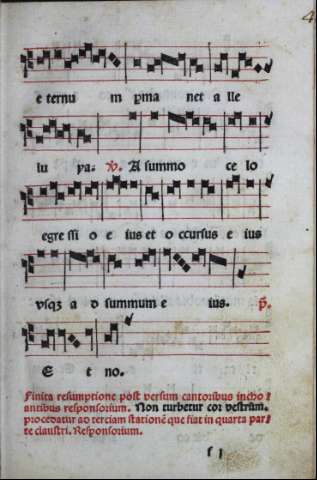 4
e ternu m pma net a lle
lu ya. ℣. A summo ce lo
egre ssi o e ius et o ccursus e ius
vsqz a d summum e ius. p̄.
E t no.
Finita resumptione post versum cantoribus incho
antibus responsorium. Non turbetur cor vestrum.
procedatur ad terciam stationē que fiat in quarta par
te claustri. Responsorium.
f j